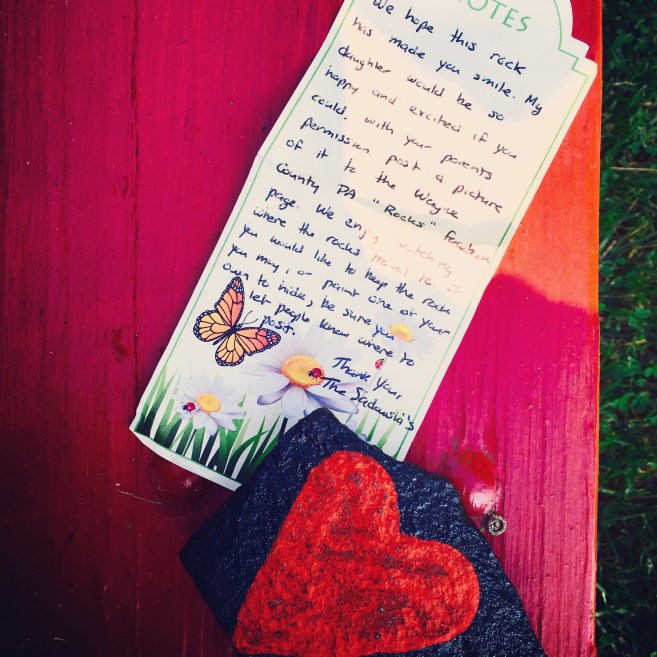 NOTES
We hope this rock
has made you smile. My
daughter would be so
happy and excited if you
could, with your parents
permission, post a picture
of it to the Wayne
County PA "Rocks" Facebook
page. We enjoy watching
where the rocks travel to. If
you would like to keep the rock
you may, or paint one of your
own to hide, be sure you
let people know where to
post.
Thank You,
The Sadowski's